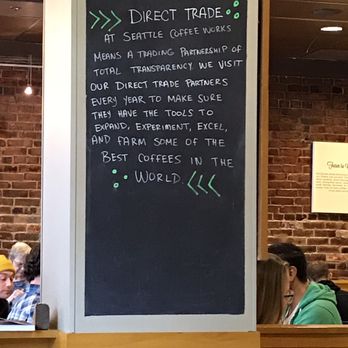 DIRECT TRADE
AT SEATTLE COFFEE WORKS
MEANS A TRADING PARTNERSHIP OF
TOTAL TRANSPARENCY. WE VISIT
OUR DIRECT TRADE PARTNERS
EVERY YEAR TO MAKE SURE
THEY HAVE THE TOOLS TO
EXPAND, EXPERIMENT, EXCEL,
AND FARM SOME OF THE
BEST COFFEES IN THE
WORLD.